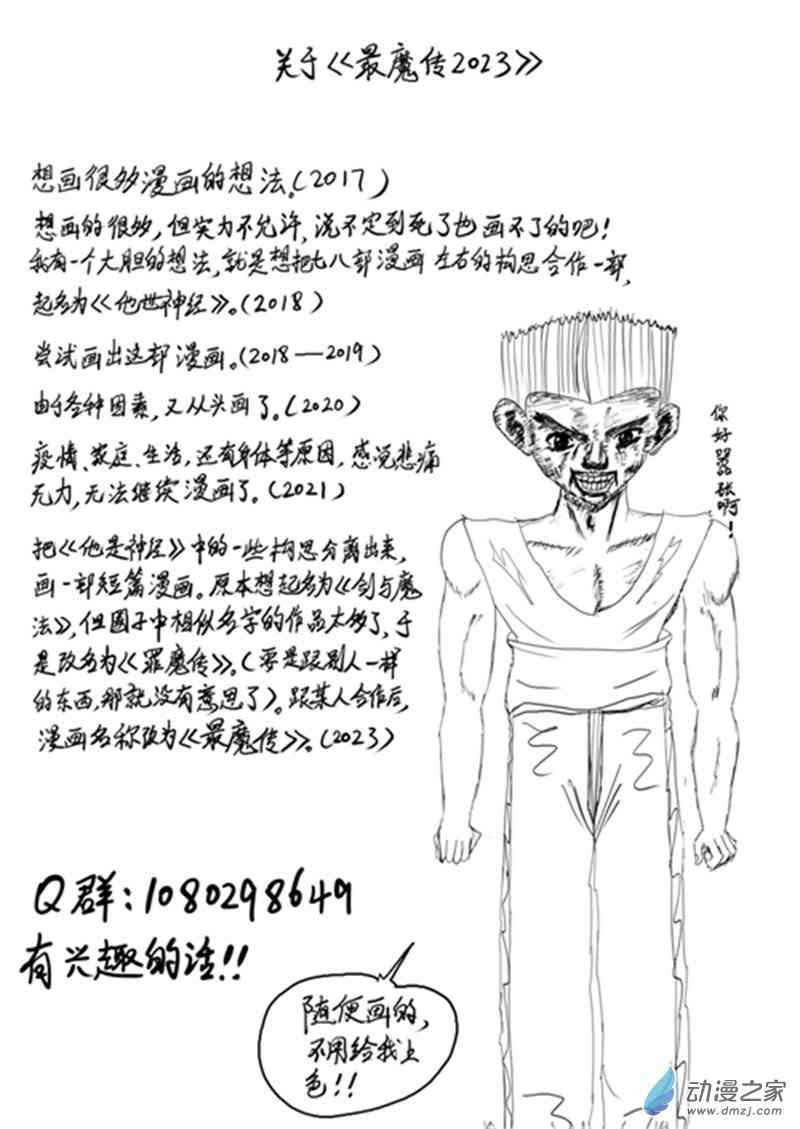 关于《最魔传2023》
想画很多漫画的想法。(2017)
想画的很多,但实力不允许,说不定到死了也画不了的吧!
我有一个大胆的想法,就是想把七八部漫画左右的构思合作一部,
起名为《他世神经》。(2018)
尝试画出这部漫画。(2018——2019)
由于各种因素,又从头画了。(2020)
疫情、家庭、生活,还有身体等原因,感觉悲痛
无力,无法继续漫画了。(2021)
把《他是神经》中的一些构思分离出来,
画一部短篇漫画。原本想起名为《剑与魔
法》,但圈子中相似名字的作品太够了,于
是改名为《罪魔传》。(要是跟别人一样
的东西,那就没有意思了)。跟某人合作后,
漫画名称改为《最魔传》。(2023)
你好嚣张啊!
Q群:1080298649
有兴趣的话!!
随便画的,
不用给我上
色!!
动漫之家
www.dmzj.com